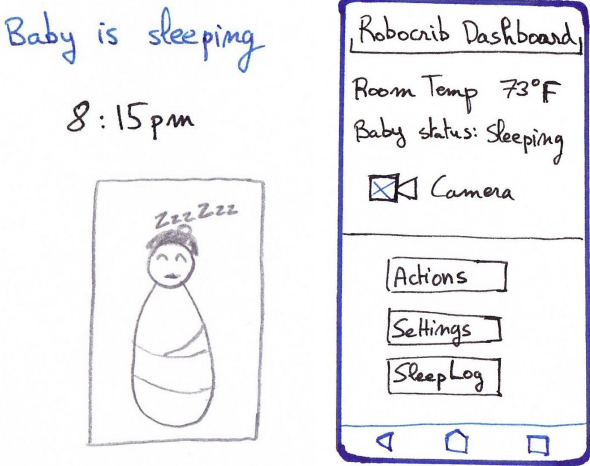 Baby is sleeping
8:15pm
ZzzZzz
Robocrib Dashboard
Room Temp 73°F
Baby status: Sleeping
Camera
Actions
Settings
Sleep Log